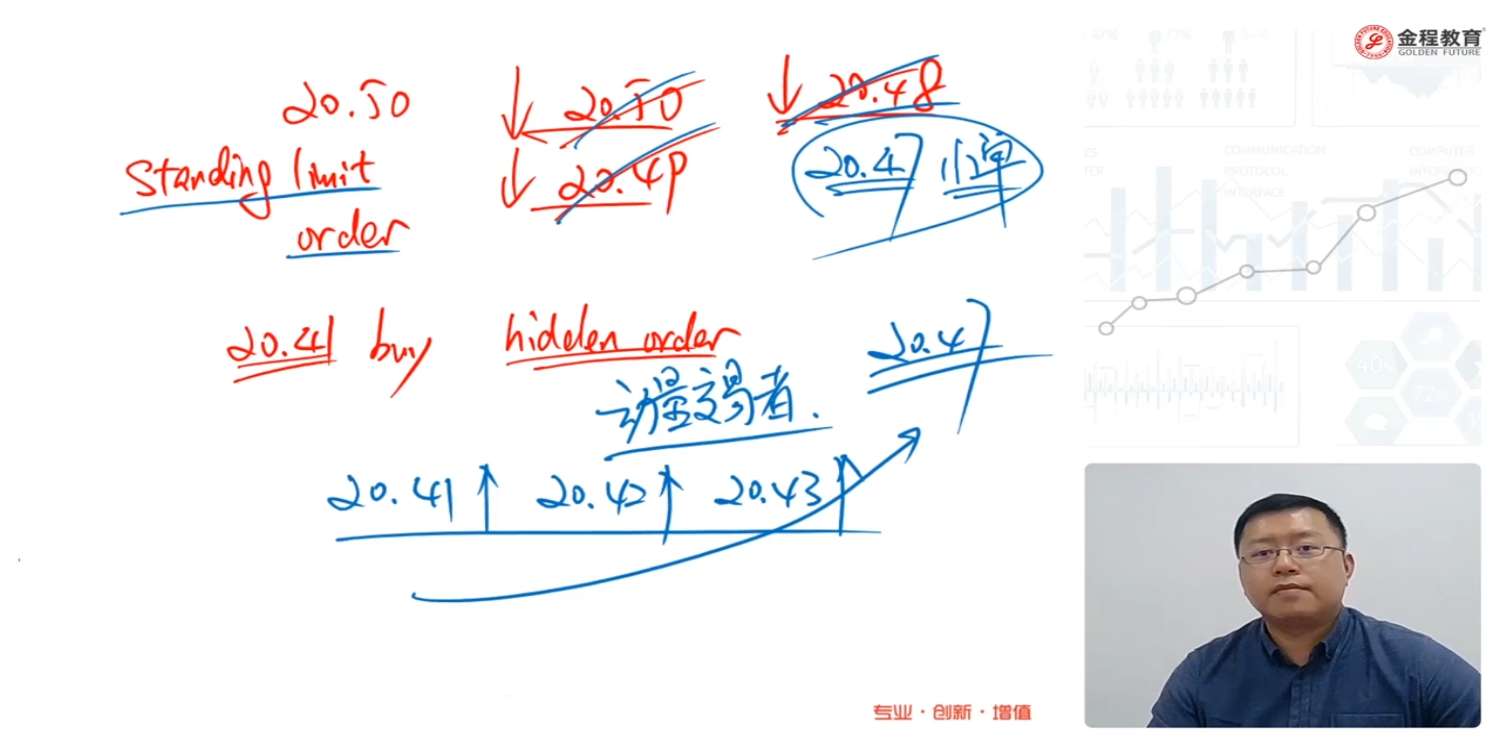 金程教育
GOLDEN FUTURE
20.50 20.50 20.48
Standing limit 20.49 20.47 小单
order
20.41 buy hidden order 20.47
动量交易者.
20.41 20.42 20.43
COMMUNICATION
PROTOCOL
INTERFACE
40%
专业·创新·增值